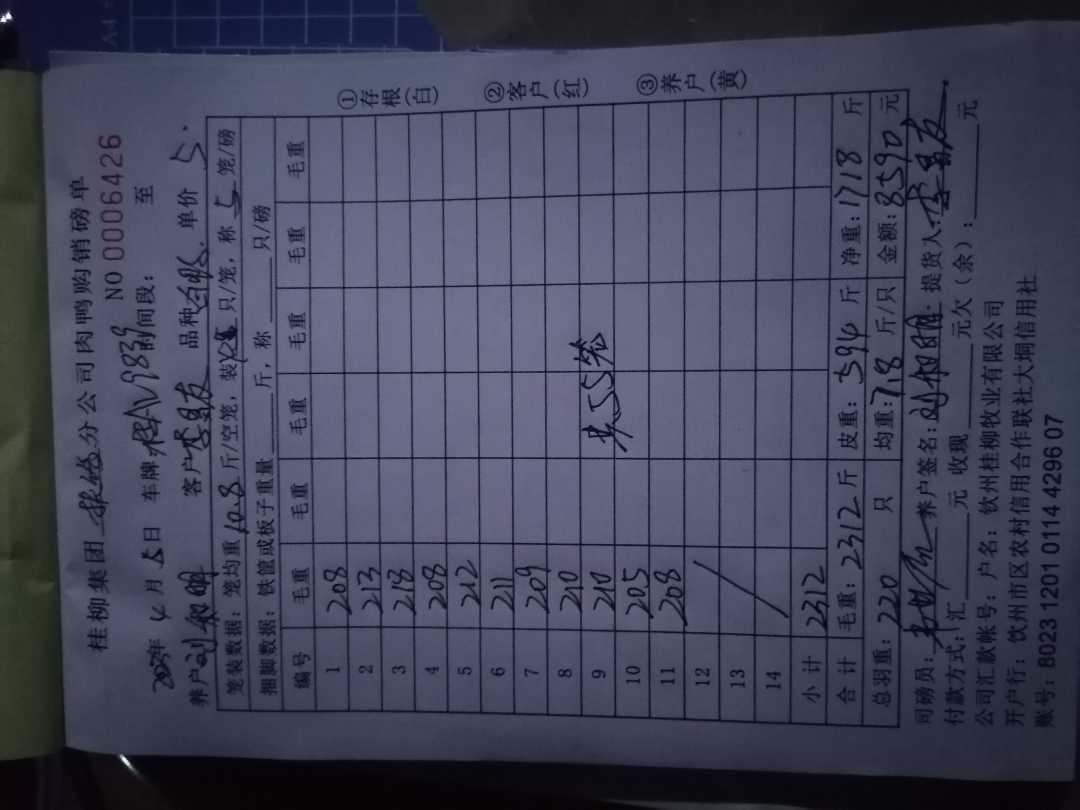 桂柳集团 分公司肉鸭购销磅单
NO 0006426
年 4 月 5 日 车牌 桂AV9839 时间段： 至
养户 刘相明 客户 李昌友 品种 白鸭 单价 5.
笼装数据：笼均重 10.8 斤/空笼，装 只/笼，称 5 笼/磅
捆脚数据：铁筐或板子重量 斤，称 只/磅
编号 毛重 毛重 毛重 毛重 毛重 毛重
1 208
2 213
3 218
4 208
5 212
6 211
7 209
8 210
9 210 共55笼
10 205
11 208
12
13
14
小计 2312
合计 毛重：2312 斤 皮重：594 斤 净重：1718 斤
总羽重：220 只 均重：7.8 斤/只 金额：8590 元
司磅员： 养户签名：刘相明 提货人：李昌友
付款方式：汇 元 收现 元欠（余）： 元
公司汇款帐号：户名：钦州桂柳牧业有限公司
开户行：钦州市区农村信用合作联社大垌信用社
账号：8023 1201 0114 4296 07
①存根（白） ②客户（红） ③养户（黄）